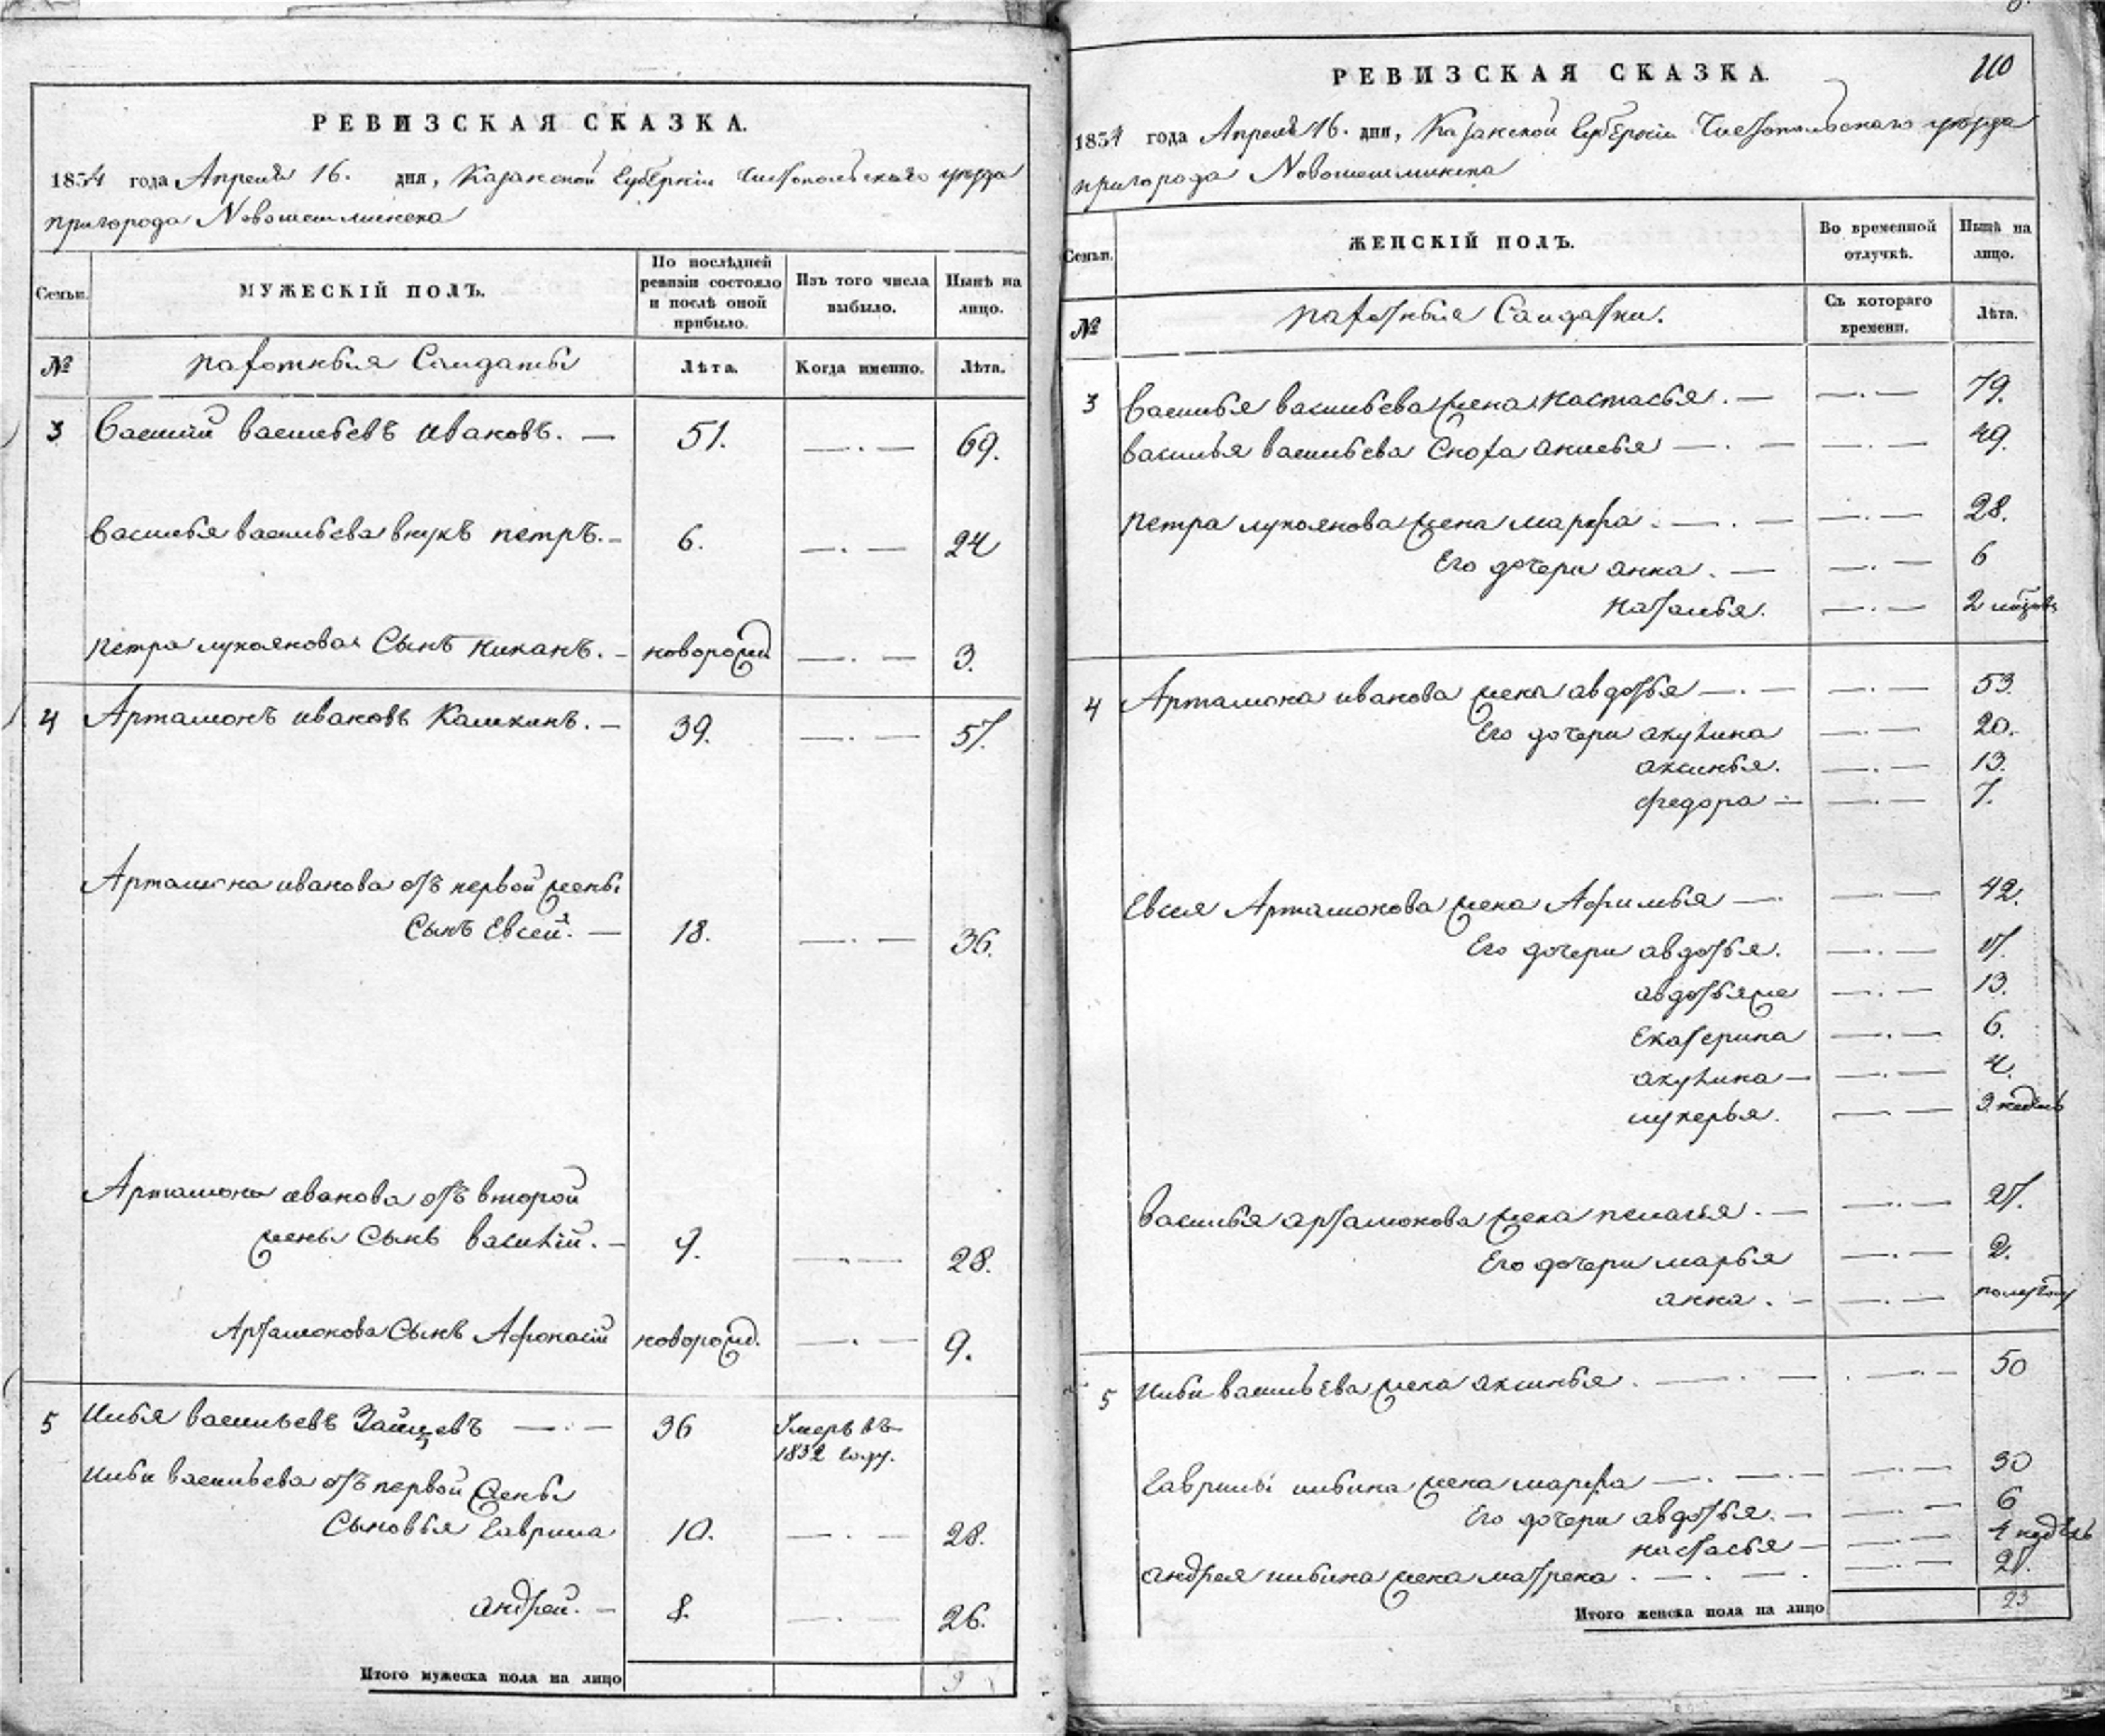 РЕВИЗСКАЯ СКАЗКА.
1834 года Апреля 16. дня, Казанской Губерніи Чистопольскаго уѣзда
пригорода Новошешминска
Семьи.
МУЖЕСКІЙ ПОЛЪ.
По послѣдней ревизіи состояло и послѣ оной прибыло.
Изъ того числа выбыло.
Нынѣ на лицо.
№
пахотныя Салдаты
Лѣта.
Когда именно.
Лѣта.
3 Василій васильевъ ивановъ. — 51. —.— 69.
василья васильева внукъ петръ. — 6. —.— 24
петра лукоянова Сынъ никанъ. — новорожд —.— 3.
4 Артамонъ ивановъ Калкинъ. — 39. —.— 57.
Артамона иванова отъ первой жены
Сынъ Евсей. — 18. —.— 36.
Артамона иванова отъ второй
жены Сынъ василій. — 9. —.— 28.
Артамонова Сынъ Афонасій новорожд. —.— 9.
5 Илья васильевъ Зайцевъ —.— 36 Умеръ въ
1832 году.
Ильи васильева отъ первой Жены
Сыновья Гаврила 10. —.— 28.
андрей. — 8. —.— 26.
Итого мужеска пола на лицо 9
РЕВИЗСКАЯ СКАЗКА. 110
1834 года Апреля 16. дня, Казанской Губерніи Чистопольскаго уѣзда
пригорода Новошешминска
Семьи.
ЖЕНСКІЙ ПОЛЪ.
Во временной отлучкѣ.
Нынѣ на лицо.
№
пахотныя Салдатки.
Съ котораго времени.
Лѣта.
3 василья васильева жена настасья. — —.— 79.
василья васильева Сноха анисья —.— —.— 49.
петра лукоянова жена марфа. —.— —.— 28.
Его дочери анна. — —.— 6
наталья. —.— 2
4 Артамона иванова жена авдотья —.— —.— 53.
Его дочери акулина —.— 20.
аксинья. —.— 13.
федора — —.— 7.
Евсея Артамонова жена Афимья — —.— 42.
Его дочери авдотья. —.— 17.
авдотьяже —.— 13.
Екатерина —.— 6.
акулина — —.— 4.
лукерья. —.— 3 недель
василья артамонова жена пелагея. — —.— 27.
Его дочери марья —.— 2.
анна. — —.— полугоду
5 Ильи васильева жена аксинья. —.— —.— 50
Гаврилы ильина жена марфа —.— —.— 30
Его дочери авдотья. — —.— 6
настасья — —.— 4 недель
андрея ильина жена матрена. —.—. —.— 27.
Итого женска пола на лицо 23